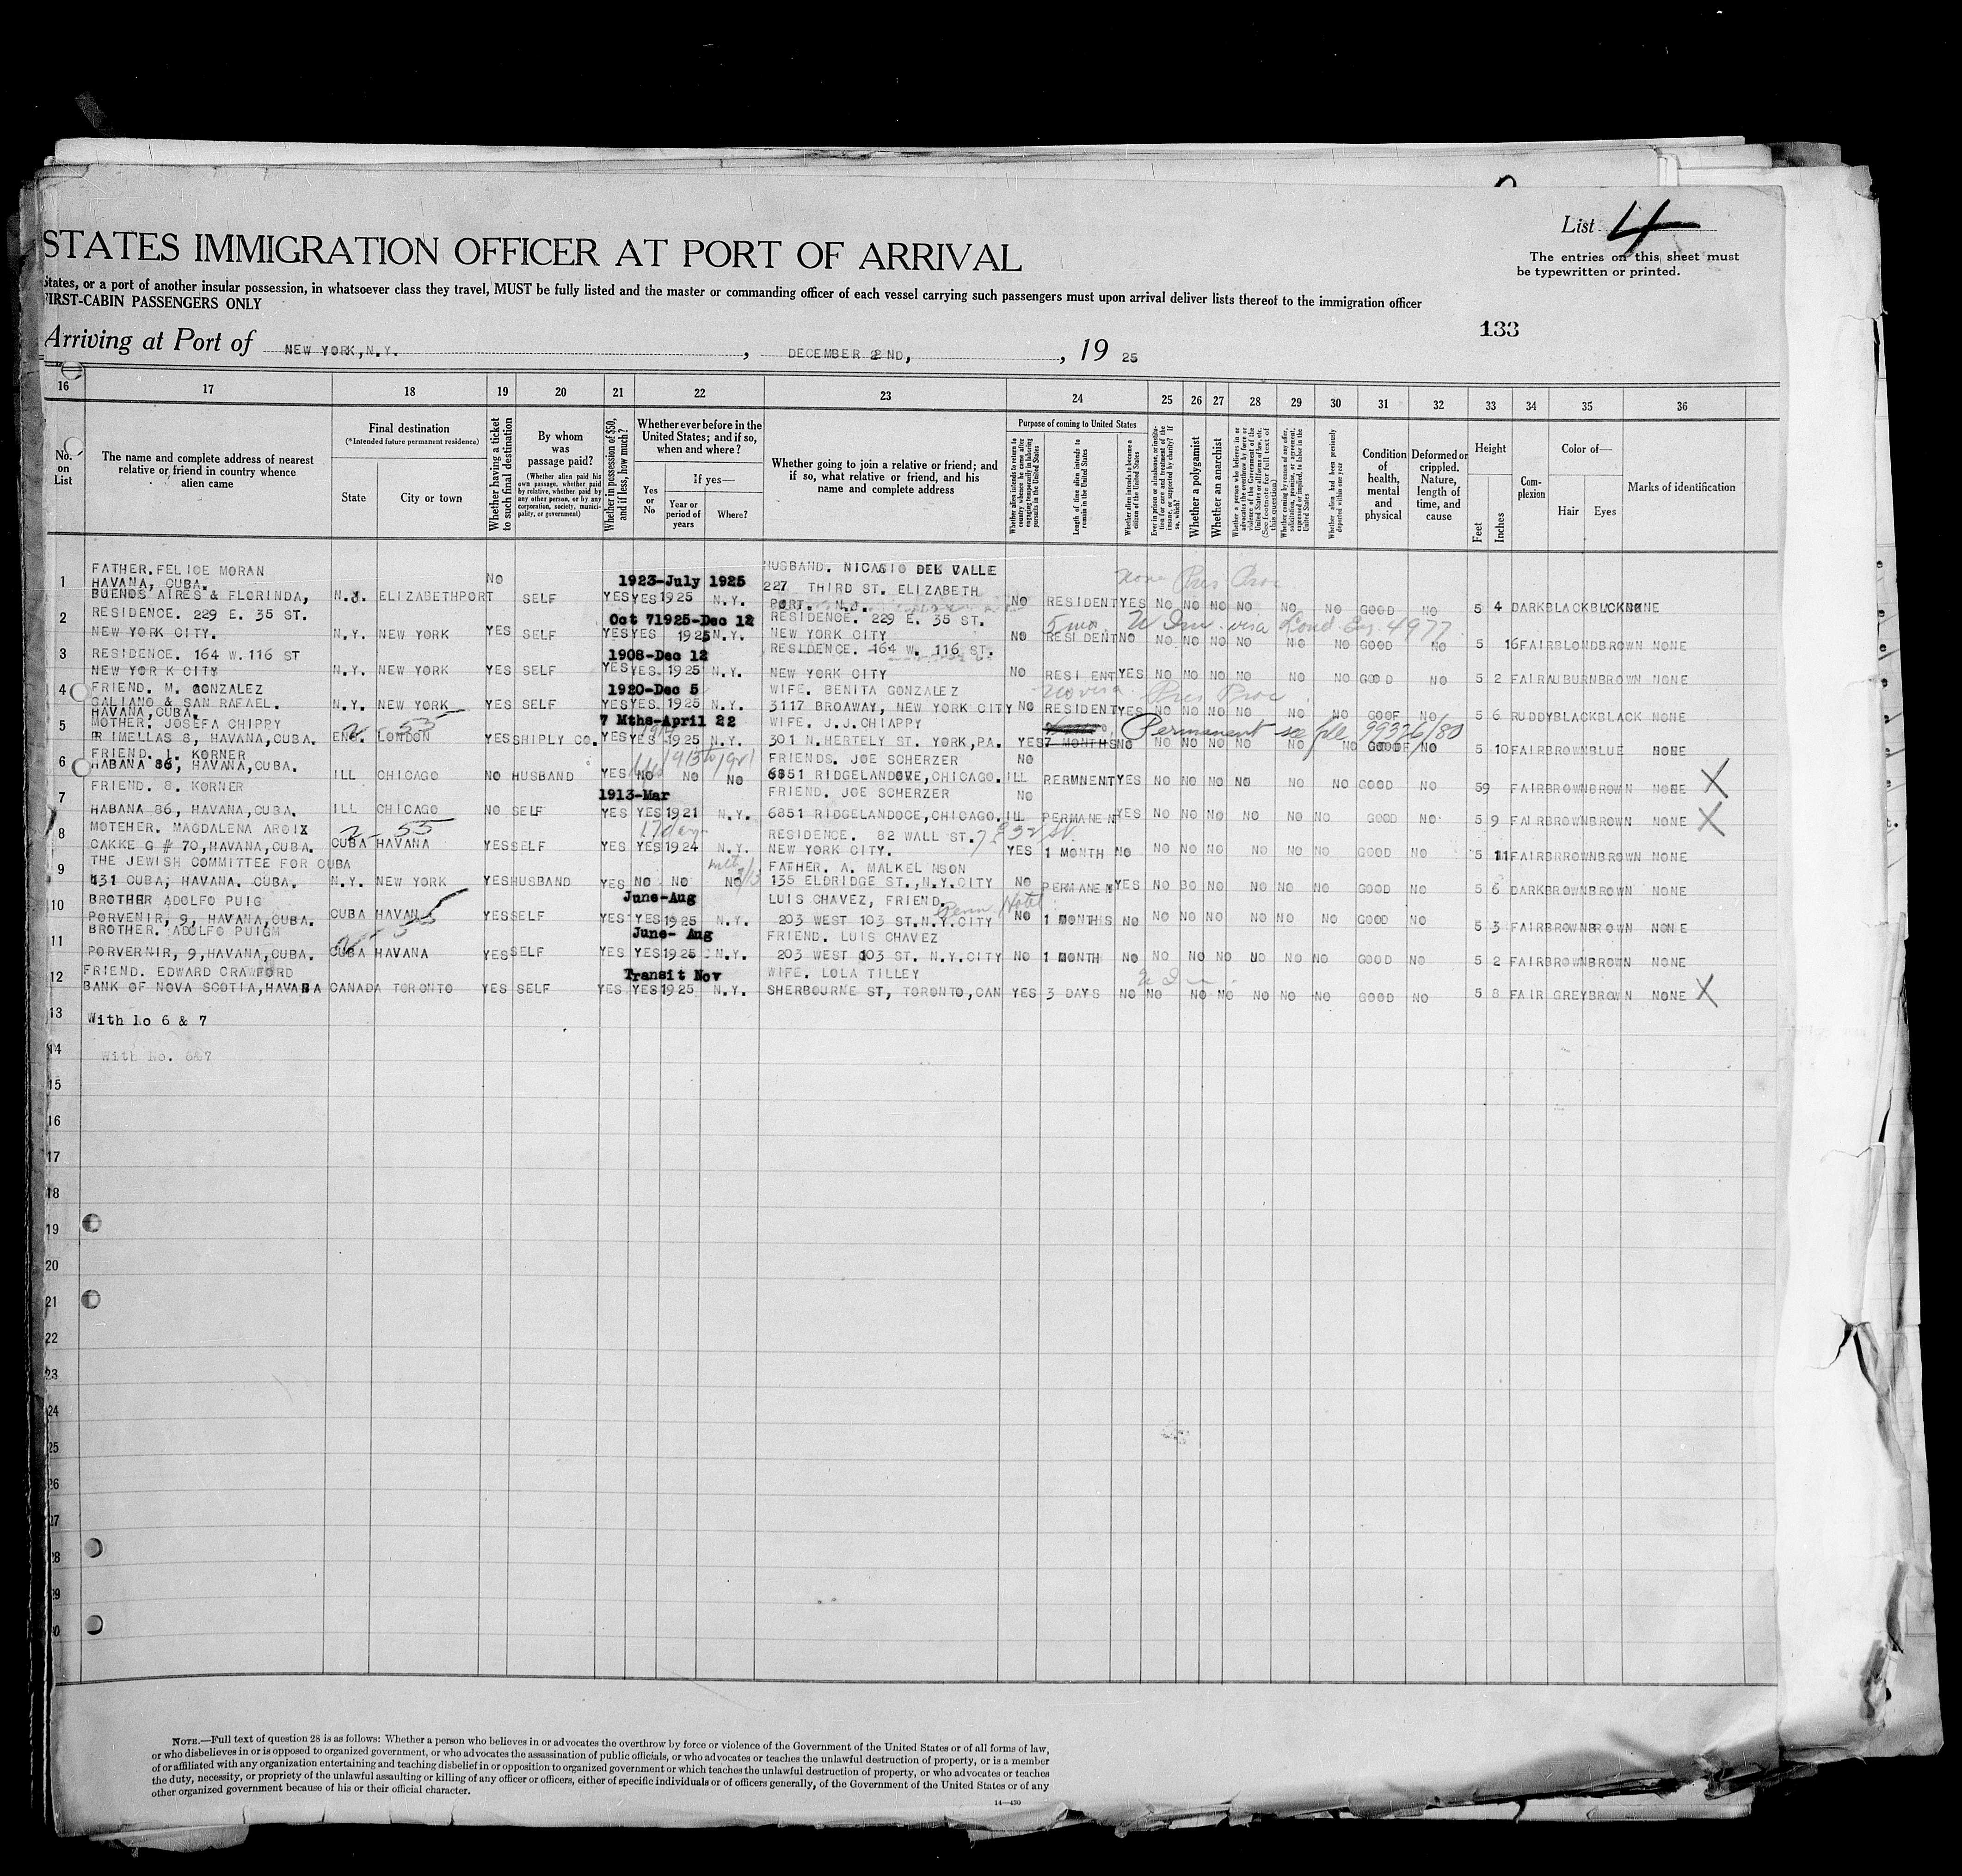 List 4
STATES IMMIGRATION OFFICER AT PORT OF ARRIVAL
The entries on this sheet must
be typewritten or printed.
States, or a port of another insular possession, in whatsoever class they travel, MUST be fully listed and the master or commanding officer of each vessel carrying such passengers must upon arrival deliver lists thereof to the immigration officer
FIRST-CABIN PASSENGERS ONLY
133
Arriving at Port of NEW YORK, N.Y. , DECEMBER 2ND, , 19 25
16 17 18 19 20 21 22 23 24 25 26 27 28 29 30 31 32 33 34 35 36
No. on List
The name and complete address of nearest relative or friend in country whence alien came
Final destination
(*Intended future permanent residence)
State
City or town
Whether having a ticket to such final destination
By whom was passage paid?
(Whether alien paid his own passage, whether paid by relative, whether paid by any other person, or by any corporation, society, municipality, or government)
Whether in possession of $50, and if less, how much?
Whether ever before in the United States; and if so, when and where?
Yes or No
If yes—
Year or period of years
Where?
Whether going to join a relative or friend; and if so, what relative or friend, and his name and complete address
Purpose of coming to United States
Whether alien intends to return to country whence he came after engaging temporarily in laboring pursuits in the United States
Length of time alien intends to remain in the United States
Whether alien intends to become a citizen of the United States
Ever in prison or almshouse, or institution for care and treatment of the insane, or supported by charity? If so, which?
Whether a polygamist
Whether an anarchist
Whether a person who believes in or advocates the overthrow by force or violence of the Government of the United States or all forms of law, etc. (See footnote for full text of this question.)
Whether coming by reason of any offer, solicitation, promise, or agreement, expressed or implied, to labor in the United States
Whether alien had been previously deported within one year
Condition of health, mental and physical
Deformed or crippled. Nature, length of time, and cause
Height
Feet
Inches
Complexion
Color of—
Hair
Eyes
Marks of identification
FATHER. FELICE MORAN HUSBAND. NICASIO DEL VALLE
1 HAVANA, CUBA. NO 1923-July 1925 227 THIRD ST. ELIZABETH none Pres Proc
BUENOS AIRES & FLORINDA, N.J. ELIZABETHPORT SELF YES YES 1925 N.Y. PORT. N.J. NO RESIDENT YES NO NO NO NO NO NO GOOD NO 5 4 DARK BLACK BLACK NONE
2 RESIDENCE. 229 E. 35 ST. Oct 71925-Dec 12 RESIDENCE. 229 E. 35 ST. 5 mo. visa Lond. Eng. 4977
NEW YORK CITY. N.Y. NEW YORK YES SELF YES YES 1925 N.Y. NEW YORK CITY NO RESIDENT NO NO NO NO NO NO NO GOOD NO 5 16 FAIR BLOND BROWN NONE
3 RESIDENCE. 164 W. 116 ST 1908-Dec 12 RESIDENCE. 164 W. 116 ST.
NEW YORK CITY N.Y. NEW YORK YES SELF YES YES. 1925 N.Y. NEW YORK CITY NO RESI ENT YES NO NO NO NO NO NO GOOD NO 5 2 FAIR AUBURN BROWN NONE
4 FRIEND. M. GONZALEZ 1920-Dec 5 WIFE. BENITA GONZALEZ no visa Pres Proc
GALIANO & SAN RAFAEL. N.Y. NEW YORK YES SELF YES YES. 1925 N.Y. 3117 BROAWAY, NEW YORK CITY NO RESIDENT YES NO NO NO NO NO NO GOOF NO 5 6 RUDDY BLACK BLACK NONE
HAVANA, CUBA.
5 MOTHER. JOSEFA CHIPPY 7 Mths-April 22 WIFE. J.J. CHIAPPY Permanent see file 99326/80
PRIMELLAS 8, HAVANA, CUBA. ENG. LONDON YES SHIPLY CO. YES YES 1925 N.Y. 301 N. HERTELY ST. YORK, PA. YES 7 MONTHS NO NO NO NO NO NO NO GOOD NO 5 10 FAIR BROWN BLUE NONE
6 FRIEND. I. KORNER Yes 1913 to 1921 FRIENDS. JOE SCHERZER NO
HABANA 86, HAVANA, CUBA. ILL CHICAGO NO HUSBAND YES NO NO NO 6851 RIDGELANDOVE, CHICAGO. ILL PERMNENT YES NO NO NO NO NO NO GOOD NO 59 FAIR BROWN BROWN NONE X
7 FRIEND. S. KORNER 1913-Mar FRIEND. JOE SCHERZER NO
HABANA 86, HAVANA, CUBA. ILL CHICAGO NO SELF YES YES 1921 N.Y. 6851 RIDGELANDOCE, CHICAGO. ILL PERMANEN YES NO NO NO NO NO NO GOOD NO 5 9 FAIR BROWN BROWN NONE X
8 MOTEHER. MAGDALENA AROIX 2-55 17 days RESIDENCE. 82 WALL ST. 7 E 32 St.
CAKKE G # 70, HAVANA, CUBA. CUBA HAVANA YES SELF YES YES 1924 N.Y. NEW YORK CITY. YES 1 MONTH NO NO NO NO NO NO NO GOOD NO 5 11 FAIR BRROWN BROWN NONE
9 THE JEWISH COMMITTEE FOR CUBA FATHER. A. MALKEL NSON
431 CUBA; HAVANA. CUBA. N.Y. NEW YORK YES HUSBAND YES NO NO NO 135 ELDRIDGE ST., N.Y. CITY NO PERMANEN YES NO BO NO NO NO NO GOOD NO 5 6 DARK BROWN BROWN NONE
10 BROTHER ADOLFO PUIG June-Aug LUIS CHAVEZ, FRIEND. Penn Hotel
PORVENIR, 9, HAVANA, CUBA. CUBA HAVANA YES SELF YES YES 1925 N.Y. 203 WEST 103 ST. N.Y. CITY NO 1 MONTHS NO NO NO NO NO NO NO GOOD NO 5 3 FAIR BROWN BROWN NONE
11 BROTHER. ADOLFO PUIGM June- Aug FRIEND. LUIS CHAVEZ
PORVERNIR, 9, HAVANA, CUBA. CUBA HAVANA YES SELF YES YES 1925 N.Y. 203 WEST 103 ST. N.Y. CITY NO 1 MONTH NO NO NO NO UO NO NO GOOD NO 5 2 FAIR BROWN BROWN NONE
12 FRIEND. EDWARD CRAWFORD Transit Nov WIFE. LOLA TILLEY
BANK OF NOVA SCOTIA, HAVABA CANADA TORONTO YES SELF YES YES 1925 N.Y. SHERBOURNE ST, TORONTO, CAN YES 3 DAYS NO NO NO NO NO NO NO GOOD NO 5 8 FAIR GREY BROWN NONE X
13 With No 6 & 7
14 With No. 6&7
15
16
17
18
19
20
21
22
23
24
25
26
27
28
29
30
NOTE.—Full text of question 28 is as follows: Whether a person who believes in or advocates the overthrow by force or violence of the Government of the United States or of all forms of law,
or who disbelieves in or is opposed to organized government, or who advocates the assassination of public officials, or who advocates or teaches the unlawful destruction of property, or is a member
of or affiliated with any organization entertaining and teaching disbelief in or opposition to organized government or which teaches the unlawful destruction of property, or who advocates or teaches
the duty, necessity, or propriety of the unlawful assaulting or killing of any officer or officers, either of specific individuals or of officers generally, of the Government of the United States or of any
other organized government because of his or their official character.
14—430